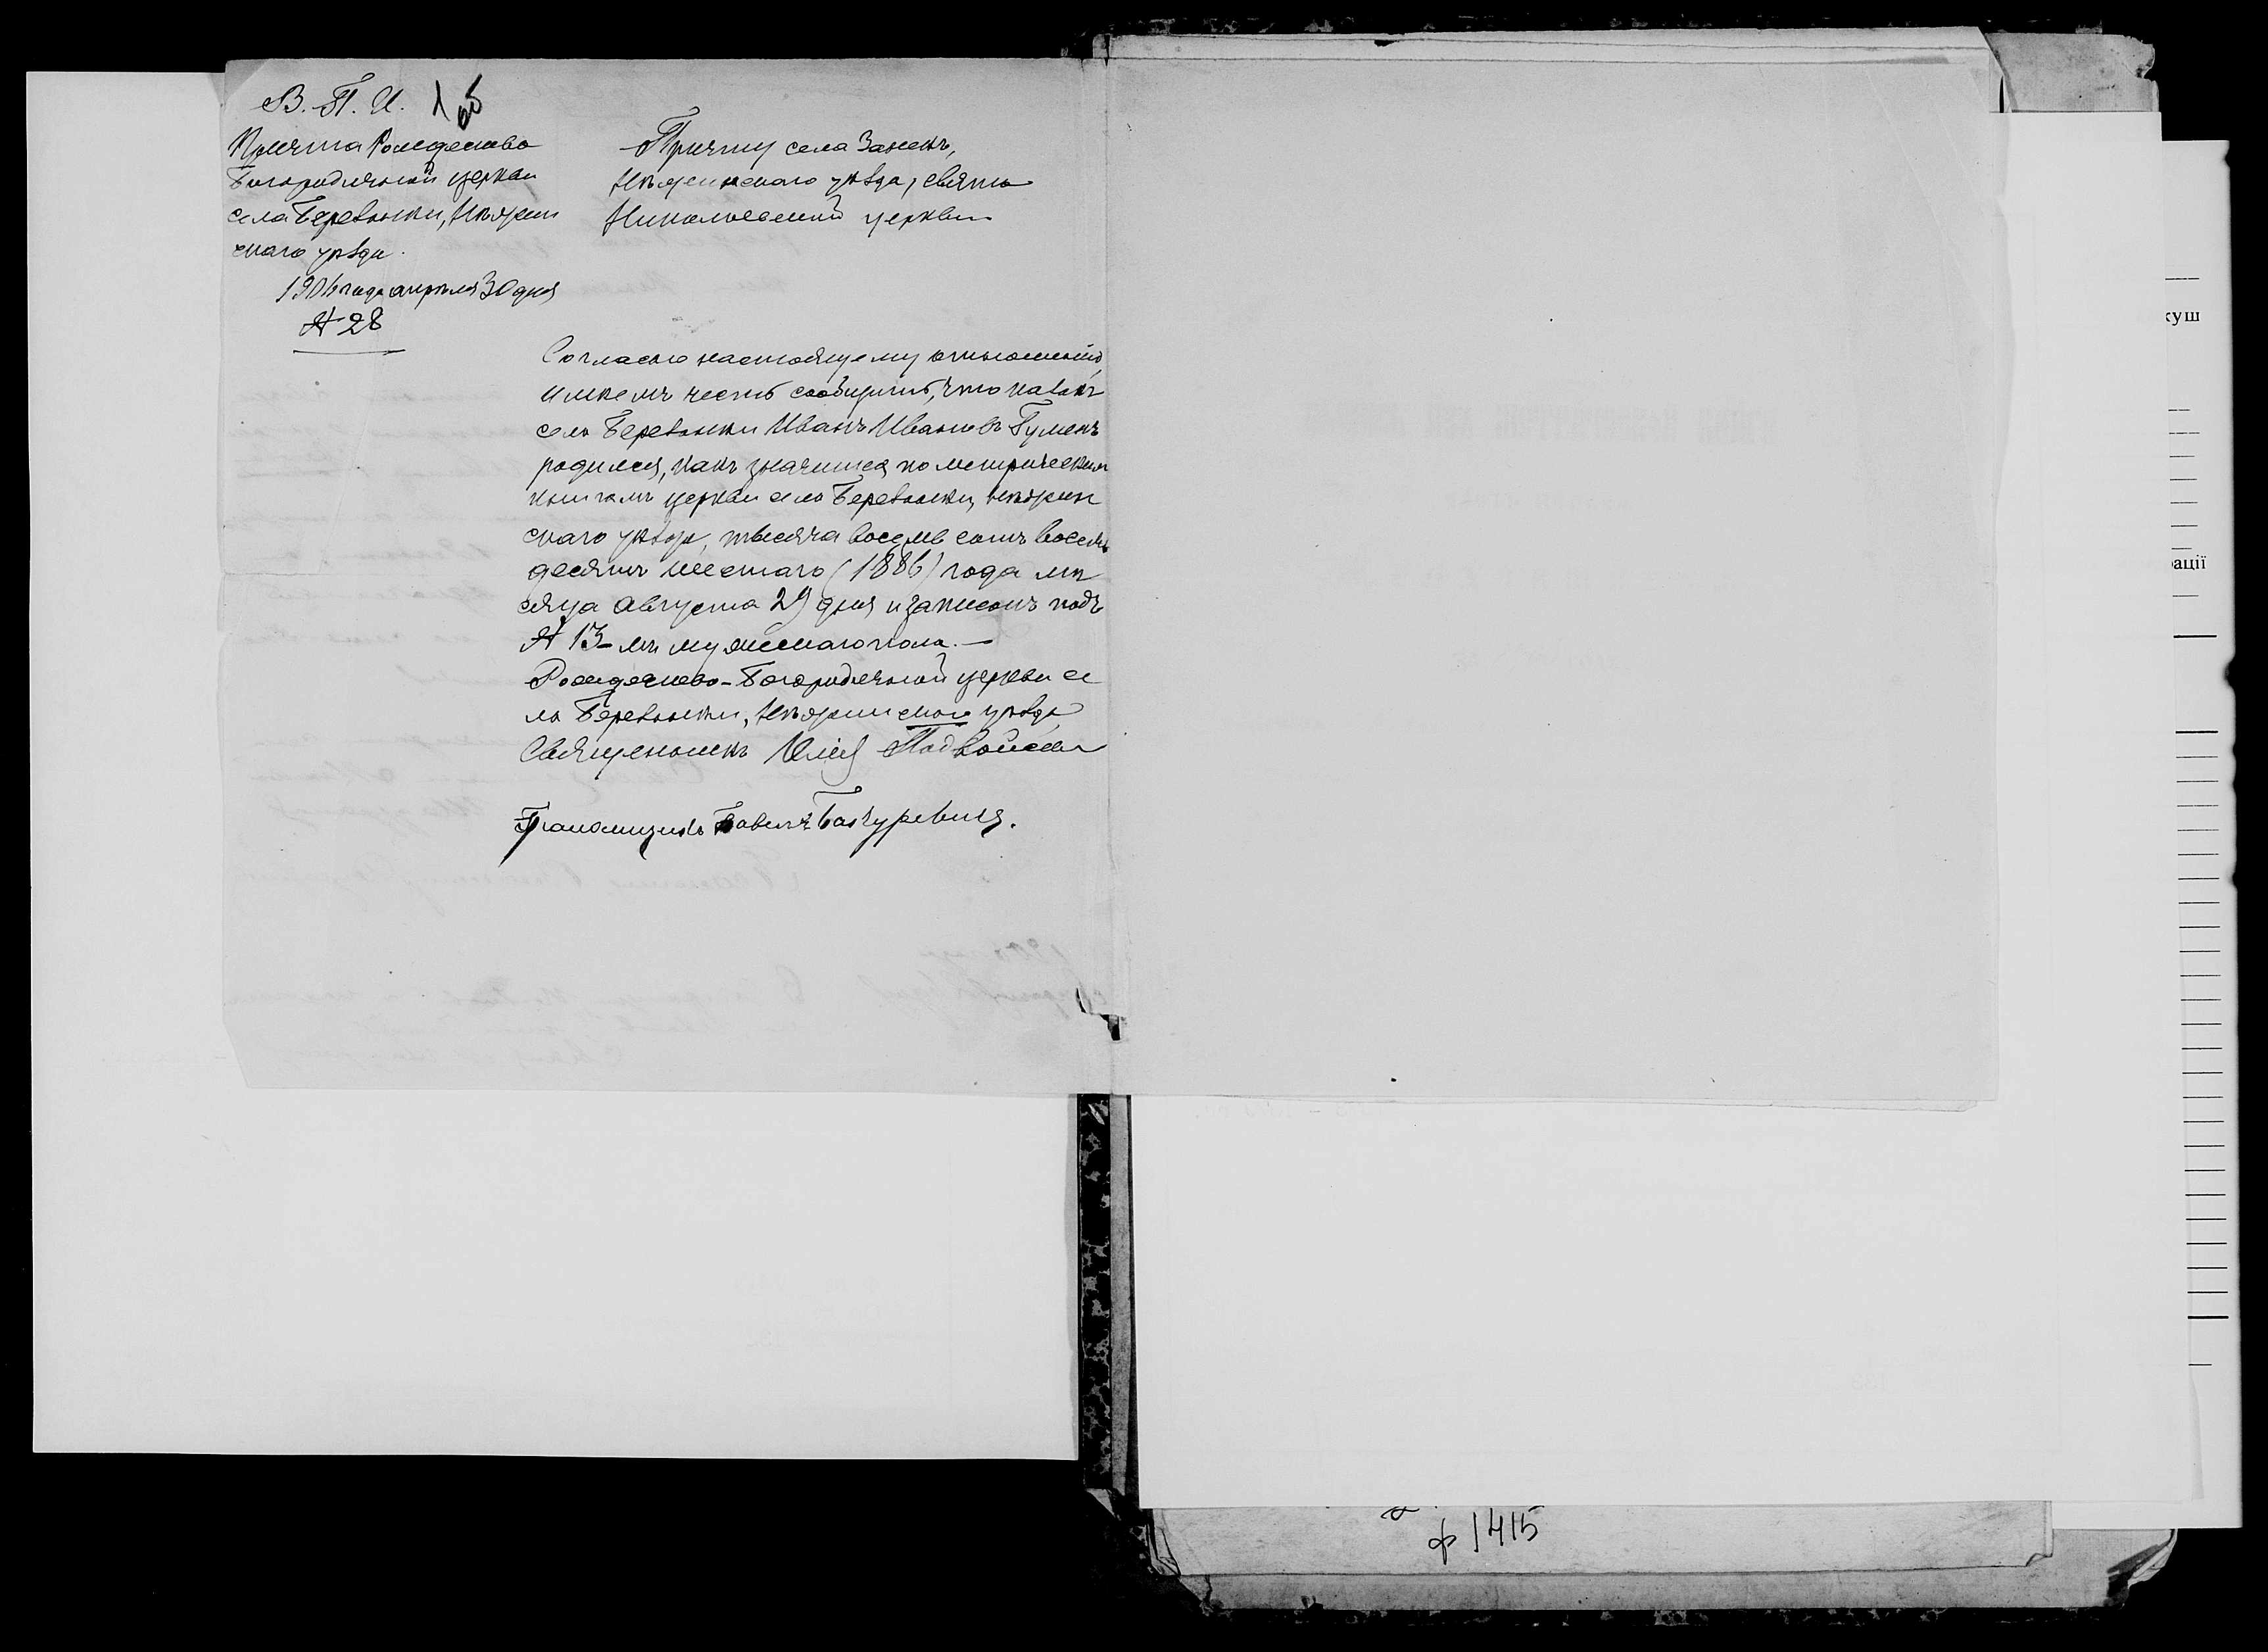 В. П. И.
Причта Рождество
Богородичной церкви
села Береванки, Нѣжин
скаго уѣзда.
1906 года апрѣля 30 дня
№ 28
Причту села Занекъ,
Нѣжинскаго уѣзда, Свято
Николаевской церкви
Согласно настоящему отношенію,
имѣемъ честь сообщить, что козакъ
села Береванки Иванъ Ивановъ Гуменъ
родился, какъ значится по метрическим
книгамъ церкви села Береванки, Нѣжин
скаго уѣзда, тысяча восемь сотъ восемь
десятъ шестаго (1886) года мѣ
сяца Августа 29 дня и записанъ подъ
№ 13-мъ мужескаго пола. —
Рождество-Богородичной церкви се
ла Береванки, Нѣжинскаго уѣзда
Священникъ Илія Подвойскій
Псаломщикъ Павелъ
ф 1415
куш
ації